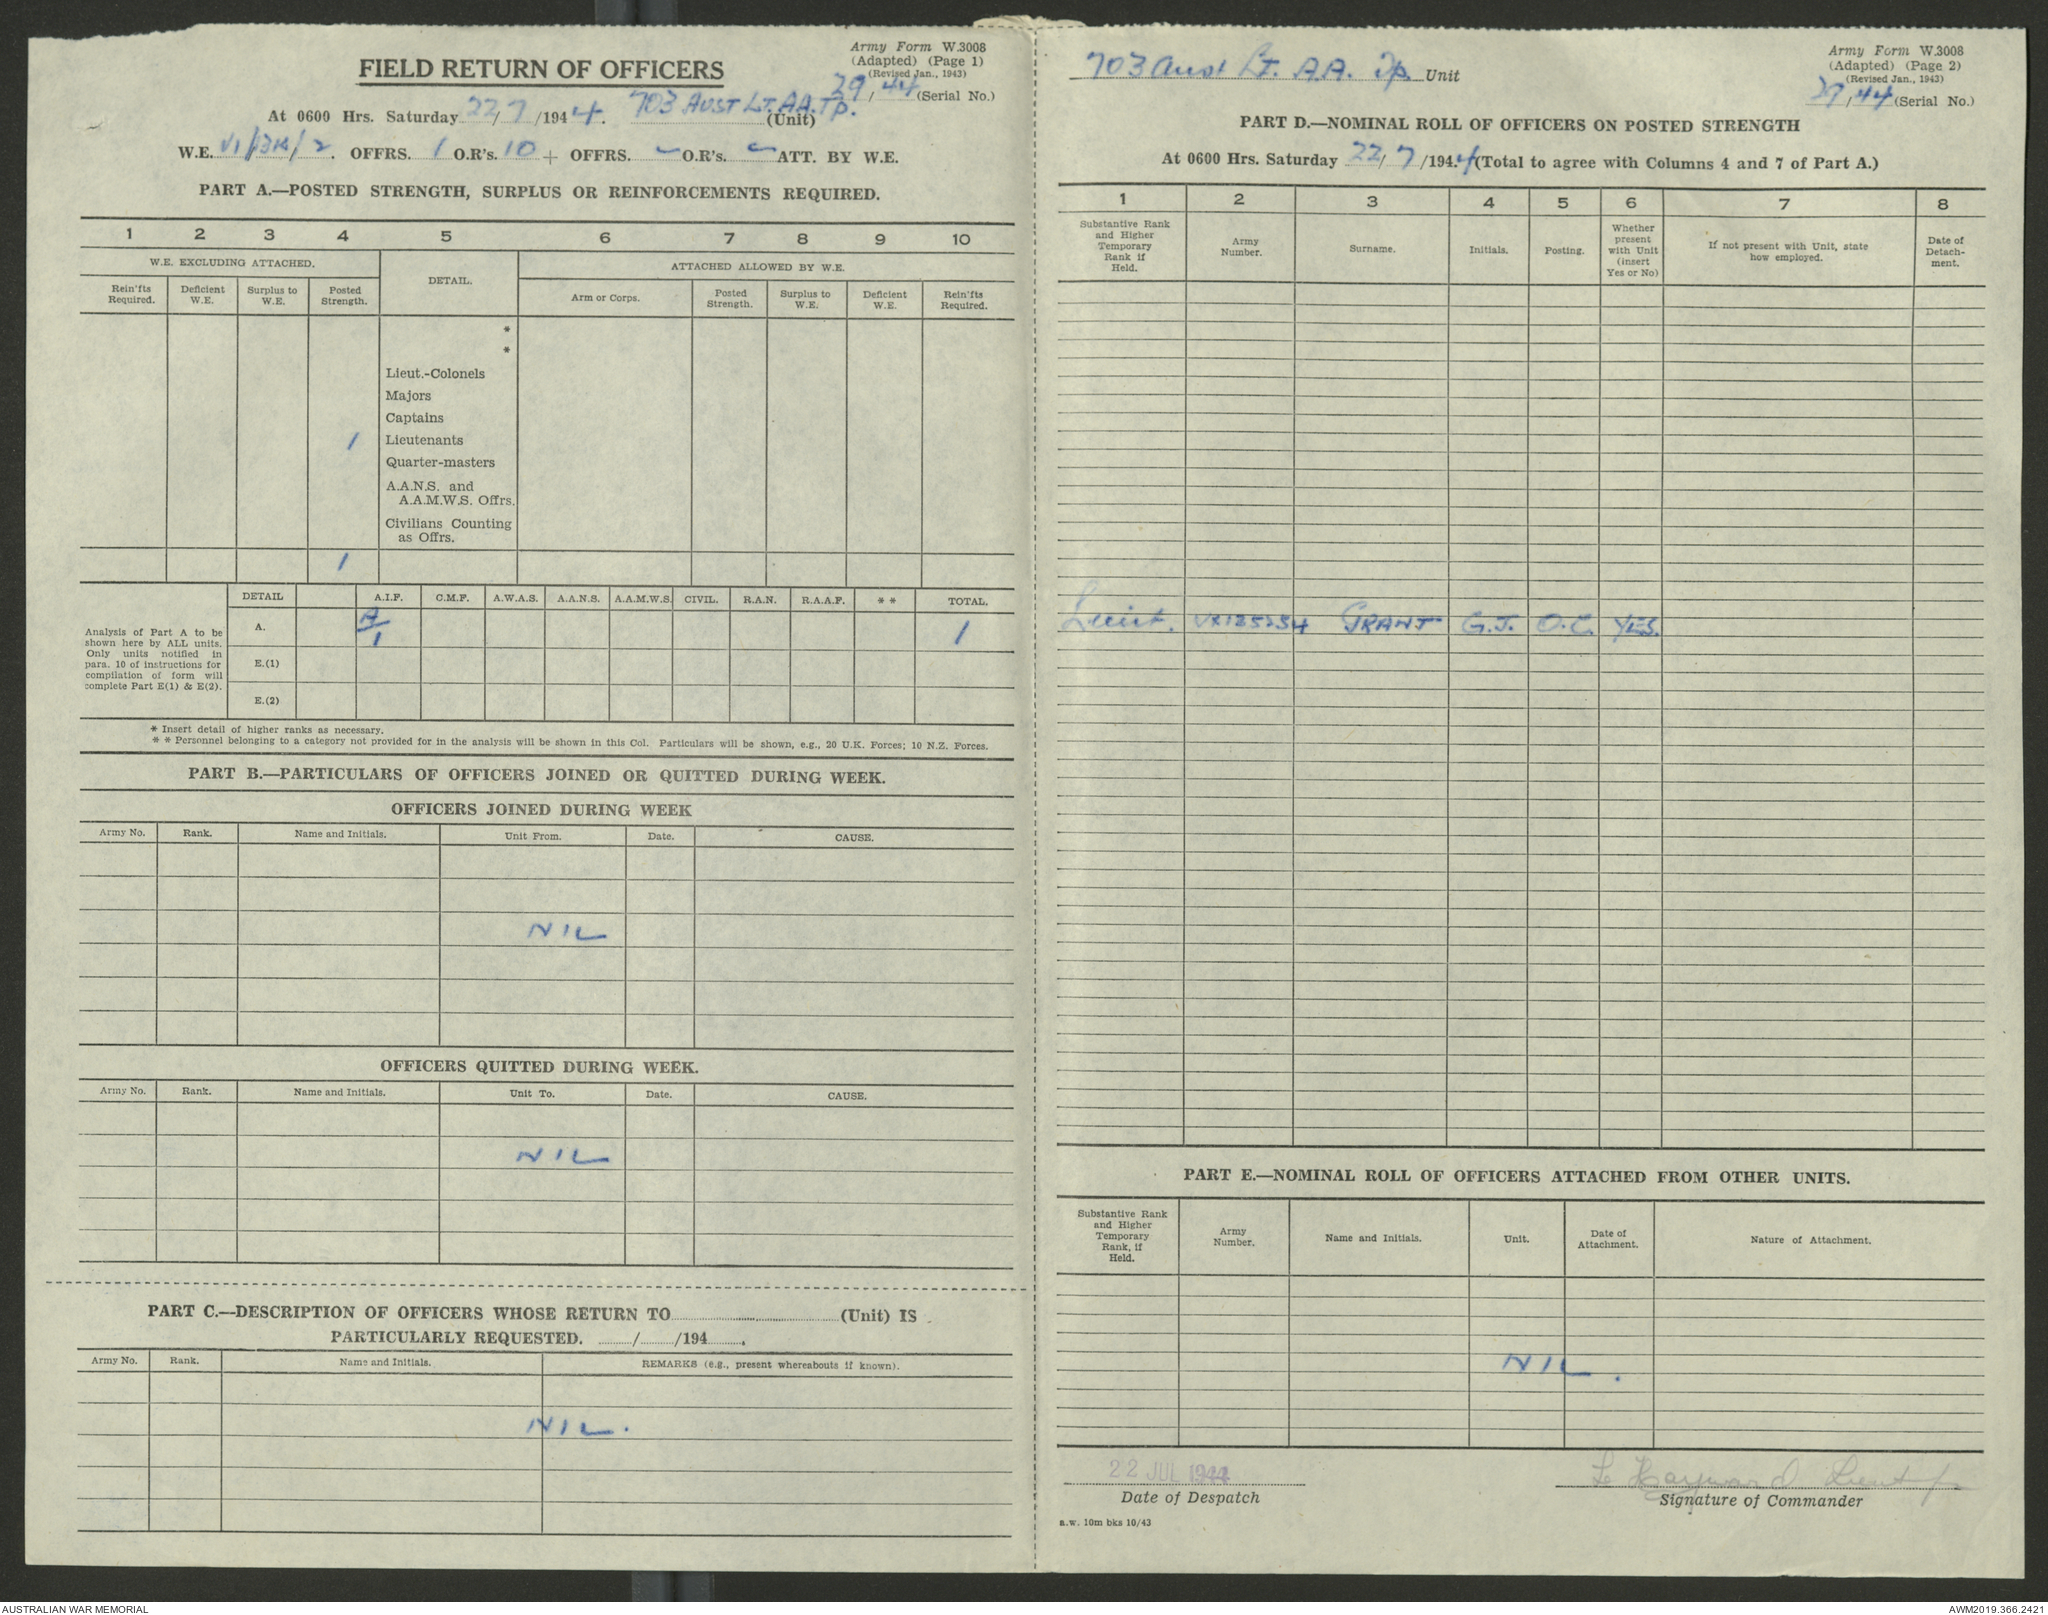 Army Form W.3008
(Adapted) (Page 1)
(Revised Jan., 1943)
FIELD RETURN OF OFFICERS
29/44 (Serial No.)
At 0600 Hrs. Saturday 22/7/1944. 703 AUST LT. A.A. Tp. (Unit)
W.E. VI/13K/2. OFFRS. 1 O.R's. 10 + OFFRS. - O.R's. - ATT. BY W.E.
PART A.—POSTED STRENGTH, SURPLUS OR REINFORCEMENTS REQUIRED.
1 2 3 4 5 6 7 8 9 10
W.E. EXCLUDING ATTACHED. DETAIL. ATTACHED ALLOWED BY W.E.
Rein'fts Required. Deficient W.E. Surplus to W.E. Posted Strength. Arm or Corps. Posted Strength. Surplus to W.E. Deficient W.E. Rein'fts Required.
*
*
Lieut.-Colonels
Majors
Captains
1 Lieutenants
Quarter-masters
A.A.N.S. and
A.A.M.W.S. Offrs.
Civilians Counting
as Offrs.
1
DETAIL A.I.F. C.M.F. A.W.A.S. A.A.N.S. A.A.M.W.S. CIVIL. R.A.N. R.A.A.F. * * TOTAL.
A. A/1 1
E.(1)
E.(2)
Analysis of Part A to be
shown here by ALL units.
Only units notified in
para. 10 of instructions for
compilation of form will
complete Part E(1) & E(2).
* Insert detail of higher ranks as necessary.
* * Personnel belonging to a category not provided for in the analysis will be shown in this Col. Particulars will be shown, e.g., 20 U.K. Forces; 10 N.Z. Forces.
PART B.—PARTICULARS OF OFFICERS JOINED OR QUITTED DURING WEEK.
OFFICERS JOINED DURING WEEK
Army No. Rank. Name and Initials. Unit From. Date. CAUSE.
NIL
OFFICERS QUITTED DURING WEEK.
Army No. Rank. Name and Initials. Unit To. Date. CAUSE.
NIL
PART C.—DESCRIPTION OF OFFICERS WHOSE RETURN TO (Unit) IS
PARTICULARLY REQUESTED. / /194 .
Army No. Rank. Name and Initials. REMARKS (e.g., present whereabouts if known).
NIL.
Army Form W.3008
(Adapted) (Page 2)
(Revised Jan., 1943)
703 Aust Lt. A.A. Tp. Unit
29/44 (Serial No.)
PART D.—NOMINAL ROLL OF OFFICERS ON POSTED STRENGTH
At 0600 Hrs. Saturday 22/7/1944 (Total to agree with Columns 4 and 7 of Part A.)
1 2 3 4 5 6 7 8
Substantive Rank and Higher Temporary Rank if Held. Army Number. Surname. Initials. Posting. Whether present with Unit (insert Yes or No) If not present with Unit, state how employed. Date of Detach-ment.
Lieut. VX125254 GRANT G.J. O.C. YES.
PART E.—NOMINAL ROLL OF OFFICERS ATTACHED FROM OTHER UNITS.
Substantive Rank and Higher Temporary Rank, if Held. Army Number. Name and Initials. Unit. Date of Attachment. Nature of Attachment.
NIL.
22 JUL 1944
Date of Despatch
L Hayward Lieut
Signature of Commander
a.w. 10m bks 10/43
AUSTRALIAN WAR MEMORIAL
AWM2019.366.2421